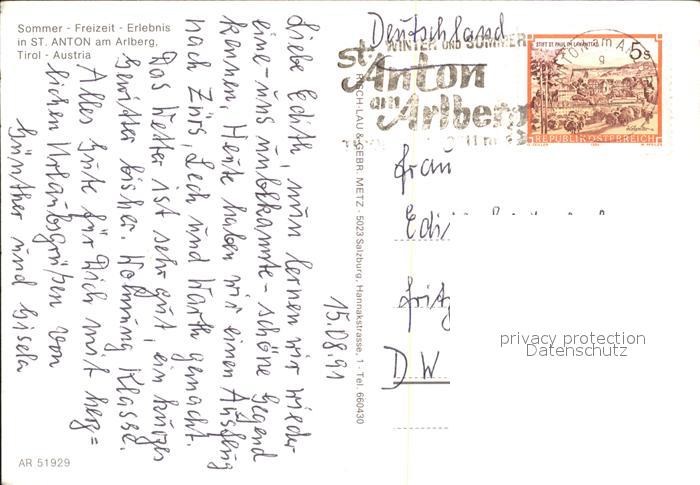 Sommer - Freizeit - Erlebnis
in ST. ANTON am Arlberg,
Tirol - Austria
15.08.91
Liebe Edith, nun lernen wir wieder
eine - uns unbekannte - schöne Gegend
kennen. Heute haben wir einen Ausflug
nach Zürs, Lech und Warth gemacht.
Das Wetter ist sehr gut, ein kurzes
Gewitter bisher. Wohnung Klasse.
Alles Gute für Dich mit herz=
lichen Urlaubsgrüßen von
Günther und Gisela
AR 51929
RISCH-LAU & GEBR. METZ - 5023 Salzburg, Hannakstrasse, 1 - Tel. 660430
Deutschland
WINTER UND SOMMER
St. Anton
am Arlberg
STIFT ST. PAUL IM LAVANTTAL
5S
REPUBLIK ÖSTERREICH
Frau
Edi
Fritz
D W
privacy protection
Datenschutz